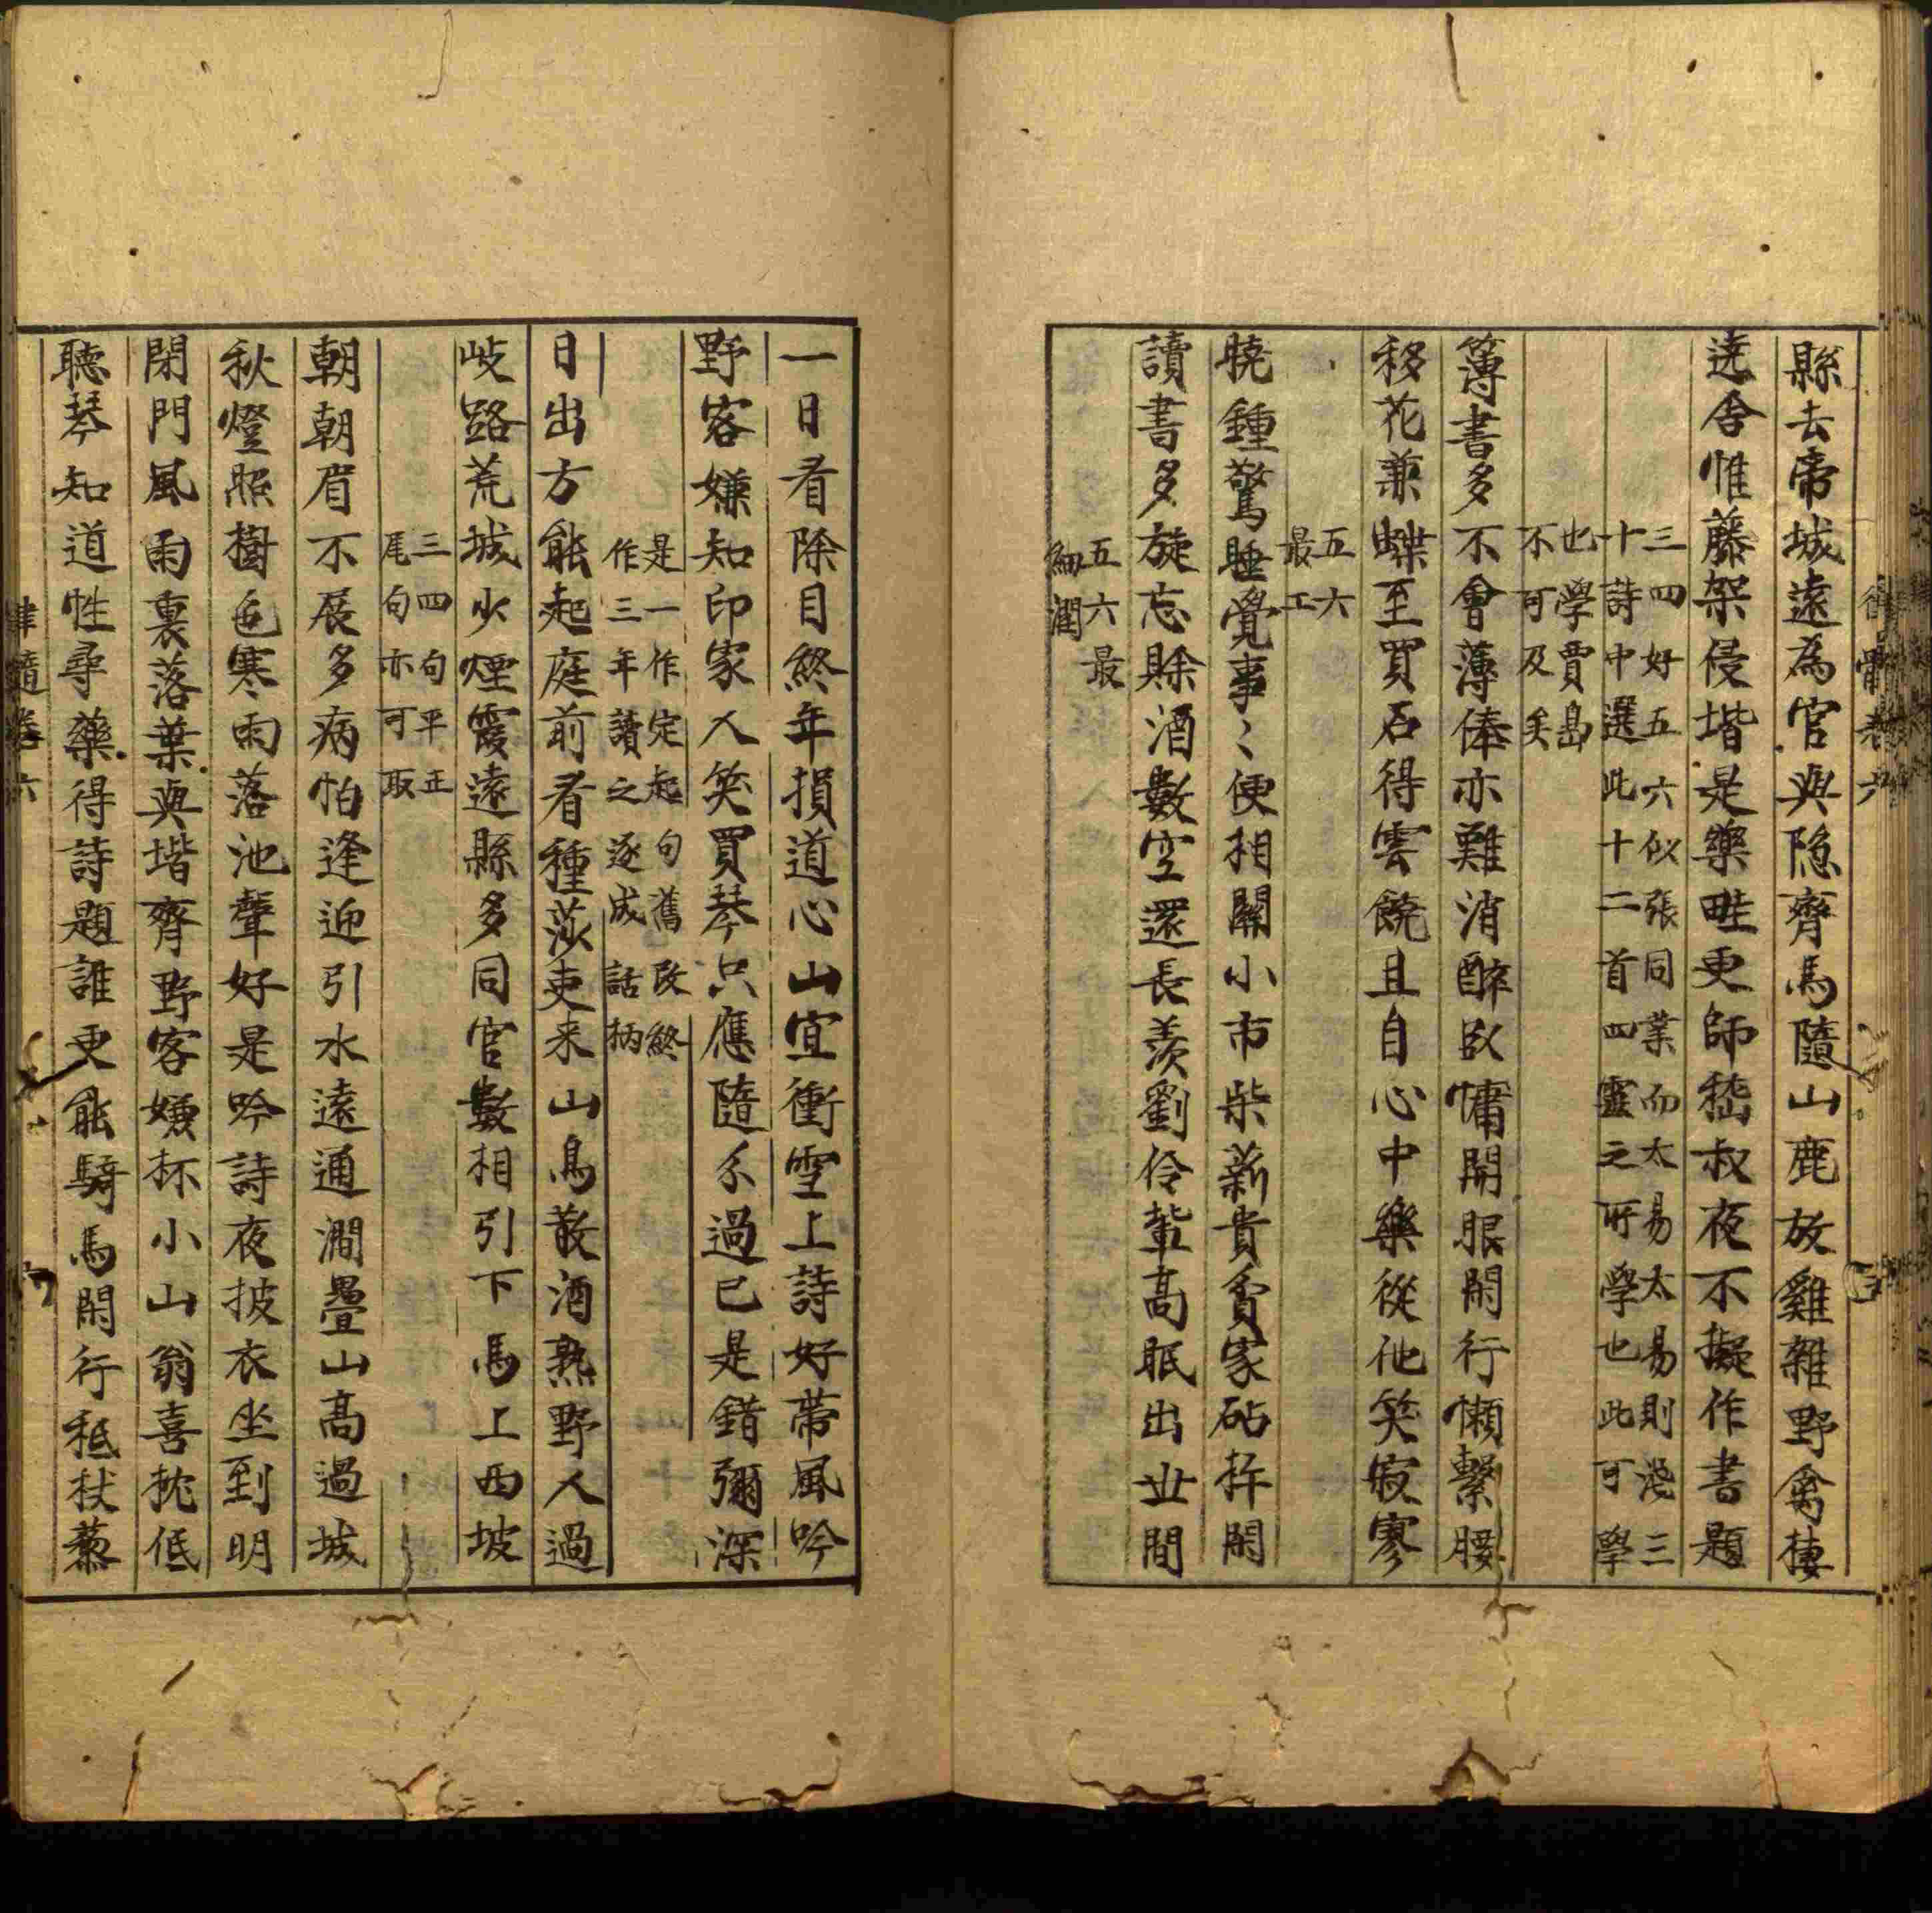 縣去帝城遠為官與隐齊馬隨山鹿放雞雜野禽棲
遶舍惟藤架侵堦是藥畦更師嵇叔夜不擬作書題
三四好五六似張同業而太易太易則淺三
十詩中選此十二首四靈之所學也此可學
也學賈島
不可及矣
簿書多不會薄俸亦難消醉臥慵開眼閑行懶繫腰
移花兼蝶至買石得雲饒且自心中樂從他笑寂寥
五六
最工
曉鍾驚睡覺事〻便相關小市柴薪貴貧家砧杵閑
讀書多旋忘賖酒數空還長羨劉伶輩髙眠出世間
五六最
細潤
一日看除目終年損道心山宜衝雪上詩好帶風吟
野客嫌知印家人笑買琴只應隨分過已是錯彌深
是一作定起句舊改終
作三年讀之逐成話柄
日出方能起庭前看種莎吏来山鳥散酒熟野人過
岐路荒城少煙霞遠縣多同官數相引下馬上西坡
三四句平正
尾句亦可取
朝朝眉不展多病怕逢迎引水遠通澗疊山高過城
秋燈照樹色寒雨落池聲好是吟詩夜披衣坐到明
閉門風雨裏落葉與堦齊野客嫌杯小山翁喜枕低
聽琴知道性尋藥得詩題誰更能騎馬閑行秪杖藜
律髓卷六